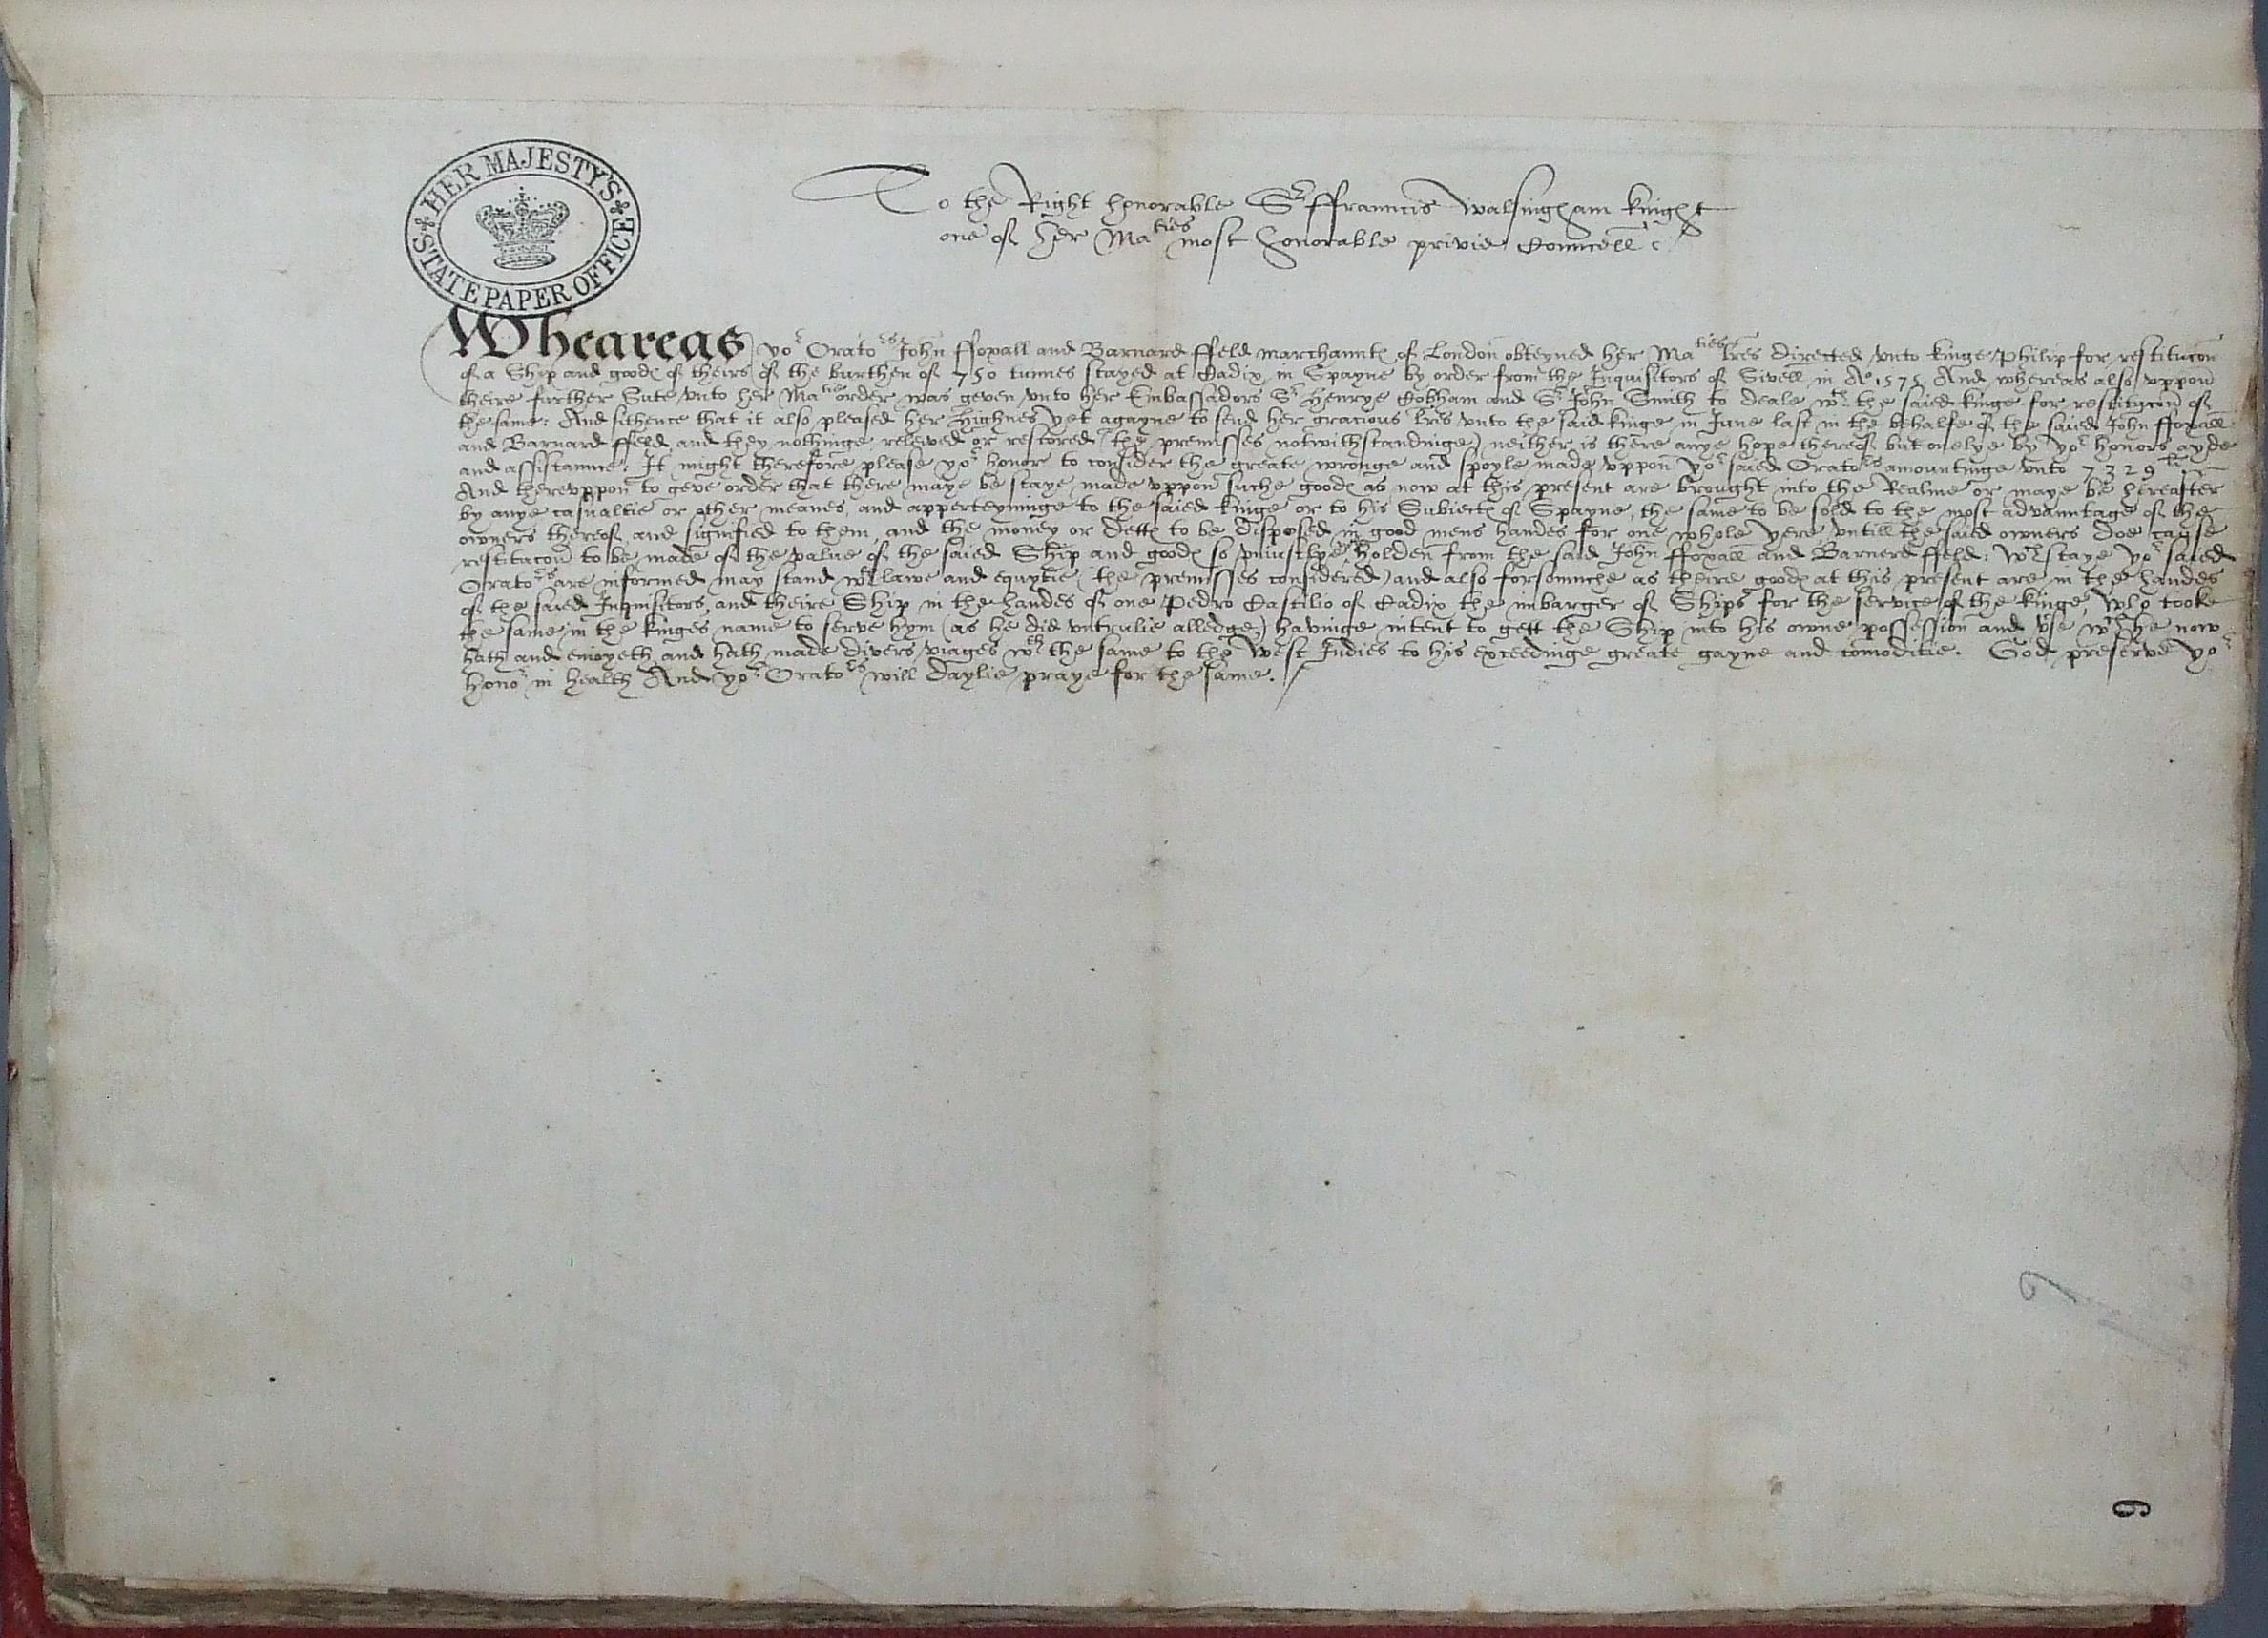 HER MAJESTY'S
STATE PAPER OFFICE
To the Right honorable Sr ffrauncis Walsingham knight
one of her Maties most honorable privie Councell
Wheareas yor Orators John ffoxall and Barnard ffeld marchaunts of London obteyned her Maties lres directed vnto kinge Philip for restitucon
of a Ship and goods of theirs of the burthen of 750 tunnes stayed at Cadix in Spayne by order from the Inquisitors of Sivell in Ao 1575 And whereas also vppon
theire further Sute vnto her Matie order was geven vnto her Embassadors Sr Henrye Cobham and Sr John Smith to deale wth the saied kinge for restitucon of
the same: And sithence that it also pleased her Highnes yet agayne to send her gracious lris vnto the said kinge in June last in the behalfe of the saied John ffoxall
and Barnard ffeld and they nothinge releved or restored (the premisses notwithstandinge) neither is there anye hope thereof but onelye by yor honors ayde
and assistaunce. It might therefore please yor honor to consider the greate wronge and spoyle made vppon yor saied Orators amountinge vnto 7329 li
And therevppon to geve order that there maye be staye made vppon suche goods as now at this present are brought into the Realme or maye be hereafter
by anye casualtie or other meanes, and apperteyninge to the saied kinge or to his Subiects of Spayne, the same to be sold to the most advauntage of the
owners thereof, and signified to them, and the money or detts to be disposed in good mens handes for one whole yere vntill the saied owners doe cause
restitucon to be made of the value of the saied Ship and goods so vniustlye wth holden from the said John ffoxall and Barnerd ffeld: Wch staye yor saied
Orators are informed may stand wth lawe and equytie (the premisses considered) and also forsomuche as theire goods at this present are in the handes
of the saied Inquisitors, and theire Ship in the handes of one Pedro Castilio of Cadix the imbarger of Ships for the service of the kinge, who tooke
the same in the kinges name to serve hym (as he did vntrulie alledge) havinge intent to gett the Ship into his owne possession and vse wch he now
hath and enioyeth and hath made divers viages wth the same to the West Indies to his exceedinge greate gayne and comoditie. God preserve yor
honor in health And yor Orators will daylie praye for the same.
9